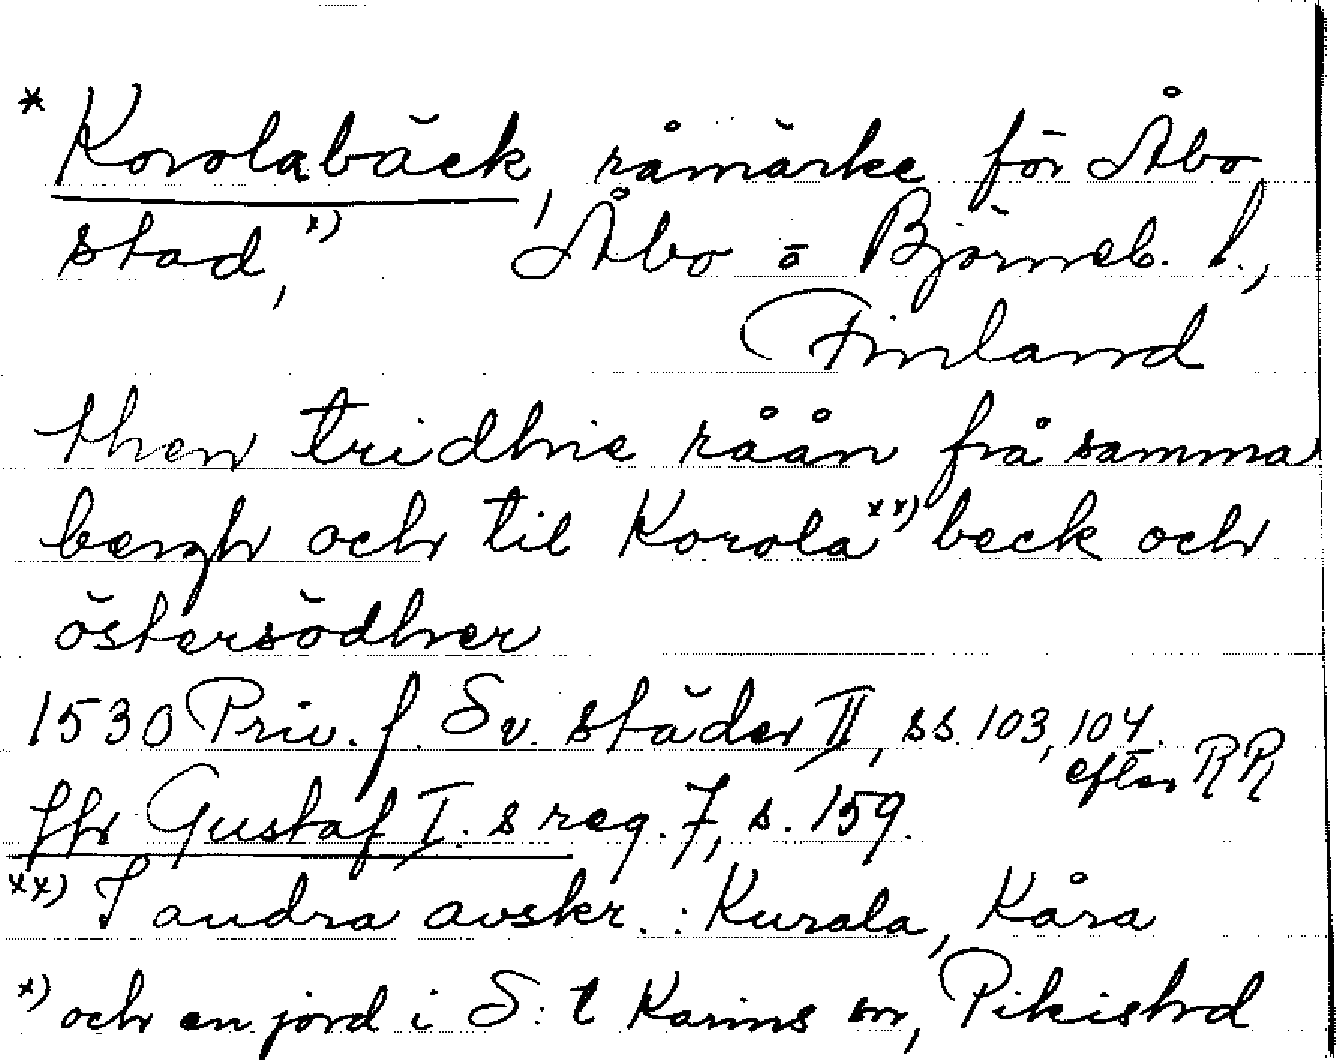 * Korolabäck, råmärke för Åbo
stad,x) Åbo o Björneb. l.,
Finland
then tridhie råån frå samma
bergh och til Korolaxx) beck och
östersödher
1530 Priv. f. Sv. städer II, ss. 103, 104.
efter RR
Jfr Gustaf I. s reg. 7, s. 159.
xx) I andra avskr. : Kurala, Kåra
x) och en jord i S:t Karins sn, Pikishrd